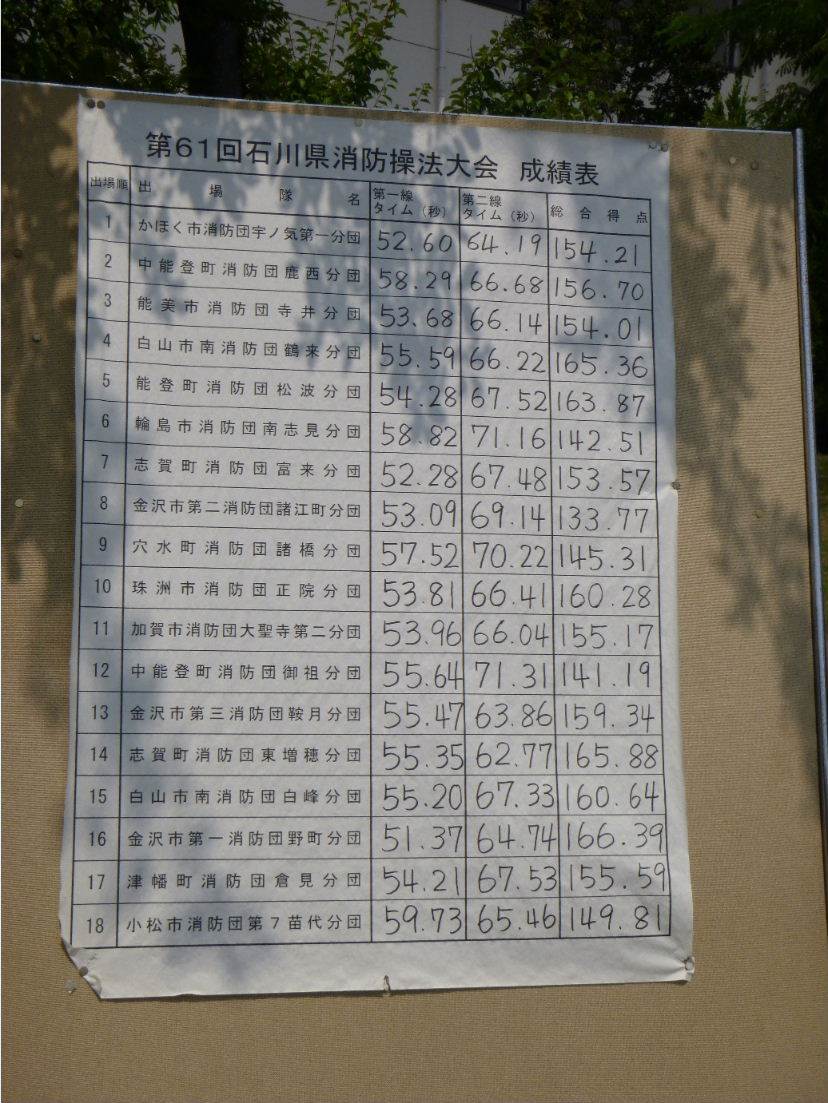 第61回石川県消防操法大会 成績表
出場順 出場隊名 第一線タイム(秒) 第二線タイム(秒) 総合得点
1 かほく市消防団宇ノ気第一分団 52.60 64.19 154.21
2 中能登町消防団鹿西分団 58.29 66.68 156.70
3 能美市消防団寺井分団 53.68 66.14 154.01
4 白山市南消防団鶴来分団 55.59 66.22 165.36
5 能登町消防団松波分団 54.28 67.52 163.87
6 輪島市消防団南志見分団 58.82 71.16 142.51
7 志賀町消防団富来分団 52.28 67.48 153.57
8 金沢市第二消防団諸江町分団 53.09 69.14 133.77
9 穴水町消防団諸橋分団 57.52 70.22 145.31
10 珠洲市消防団正院分団 53.81 66.41 160.28
11 加賀市消防団大聖寺第二分団 53.96 66.04 155.17
12 中能登町消防団御祖分団 55.64 71.31 141.19
13 金沢市第三消防団鞍月分団 55.47 63.86 159.34
14 志賀町消防団東増穂分団 55.35 62.77 165.88
15 白山市南消防団白峰分団 55.20 67.33 160.64
16 金沢市第一消防団野町分団 51.37 64.74 166.39
17 津幡町消防団倉見分団 54.21 67.53 155.59
18 小松市消防団第7苗代分団 59.73 65.46 149.81